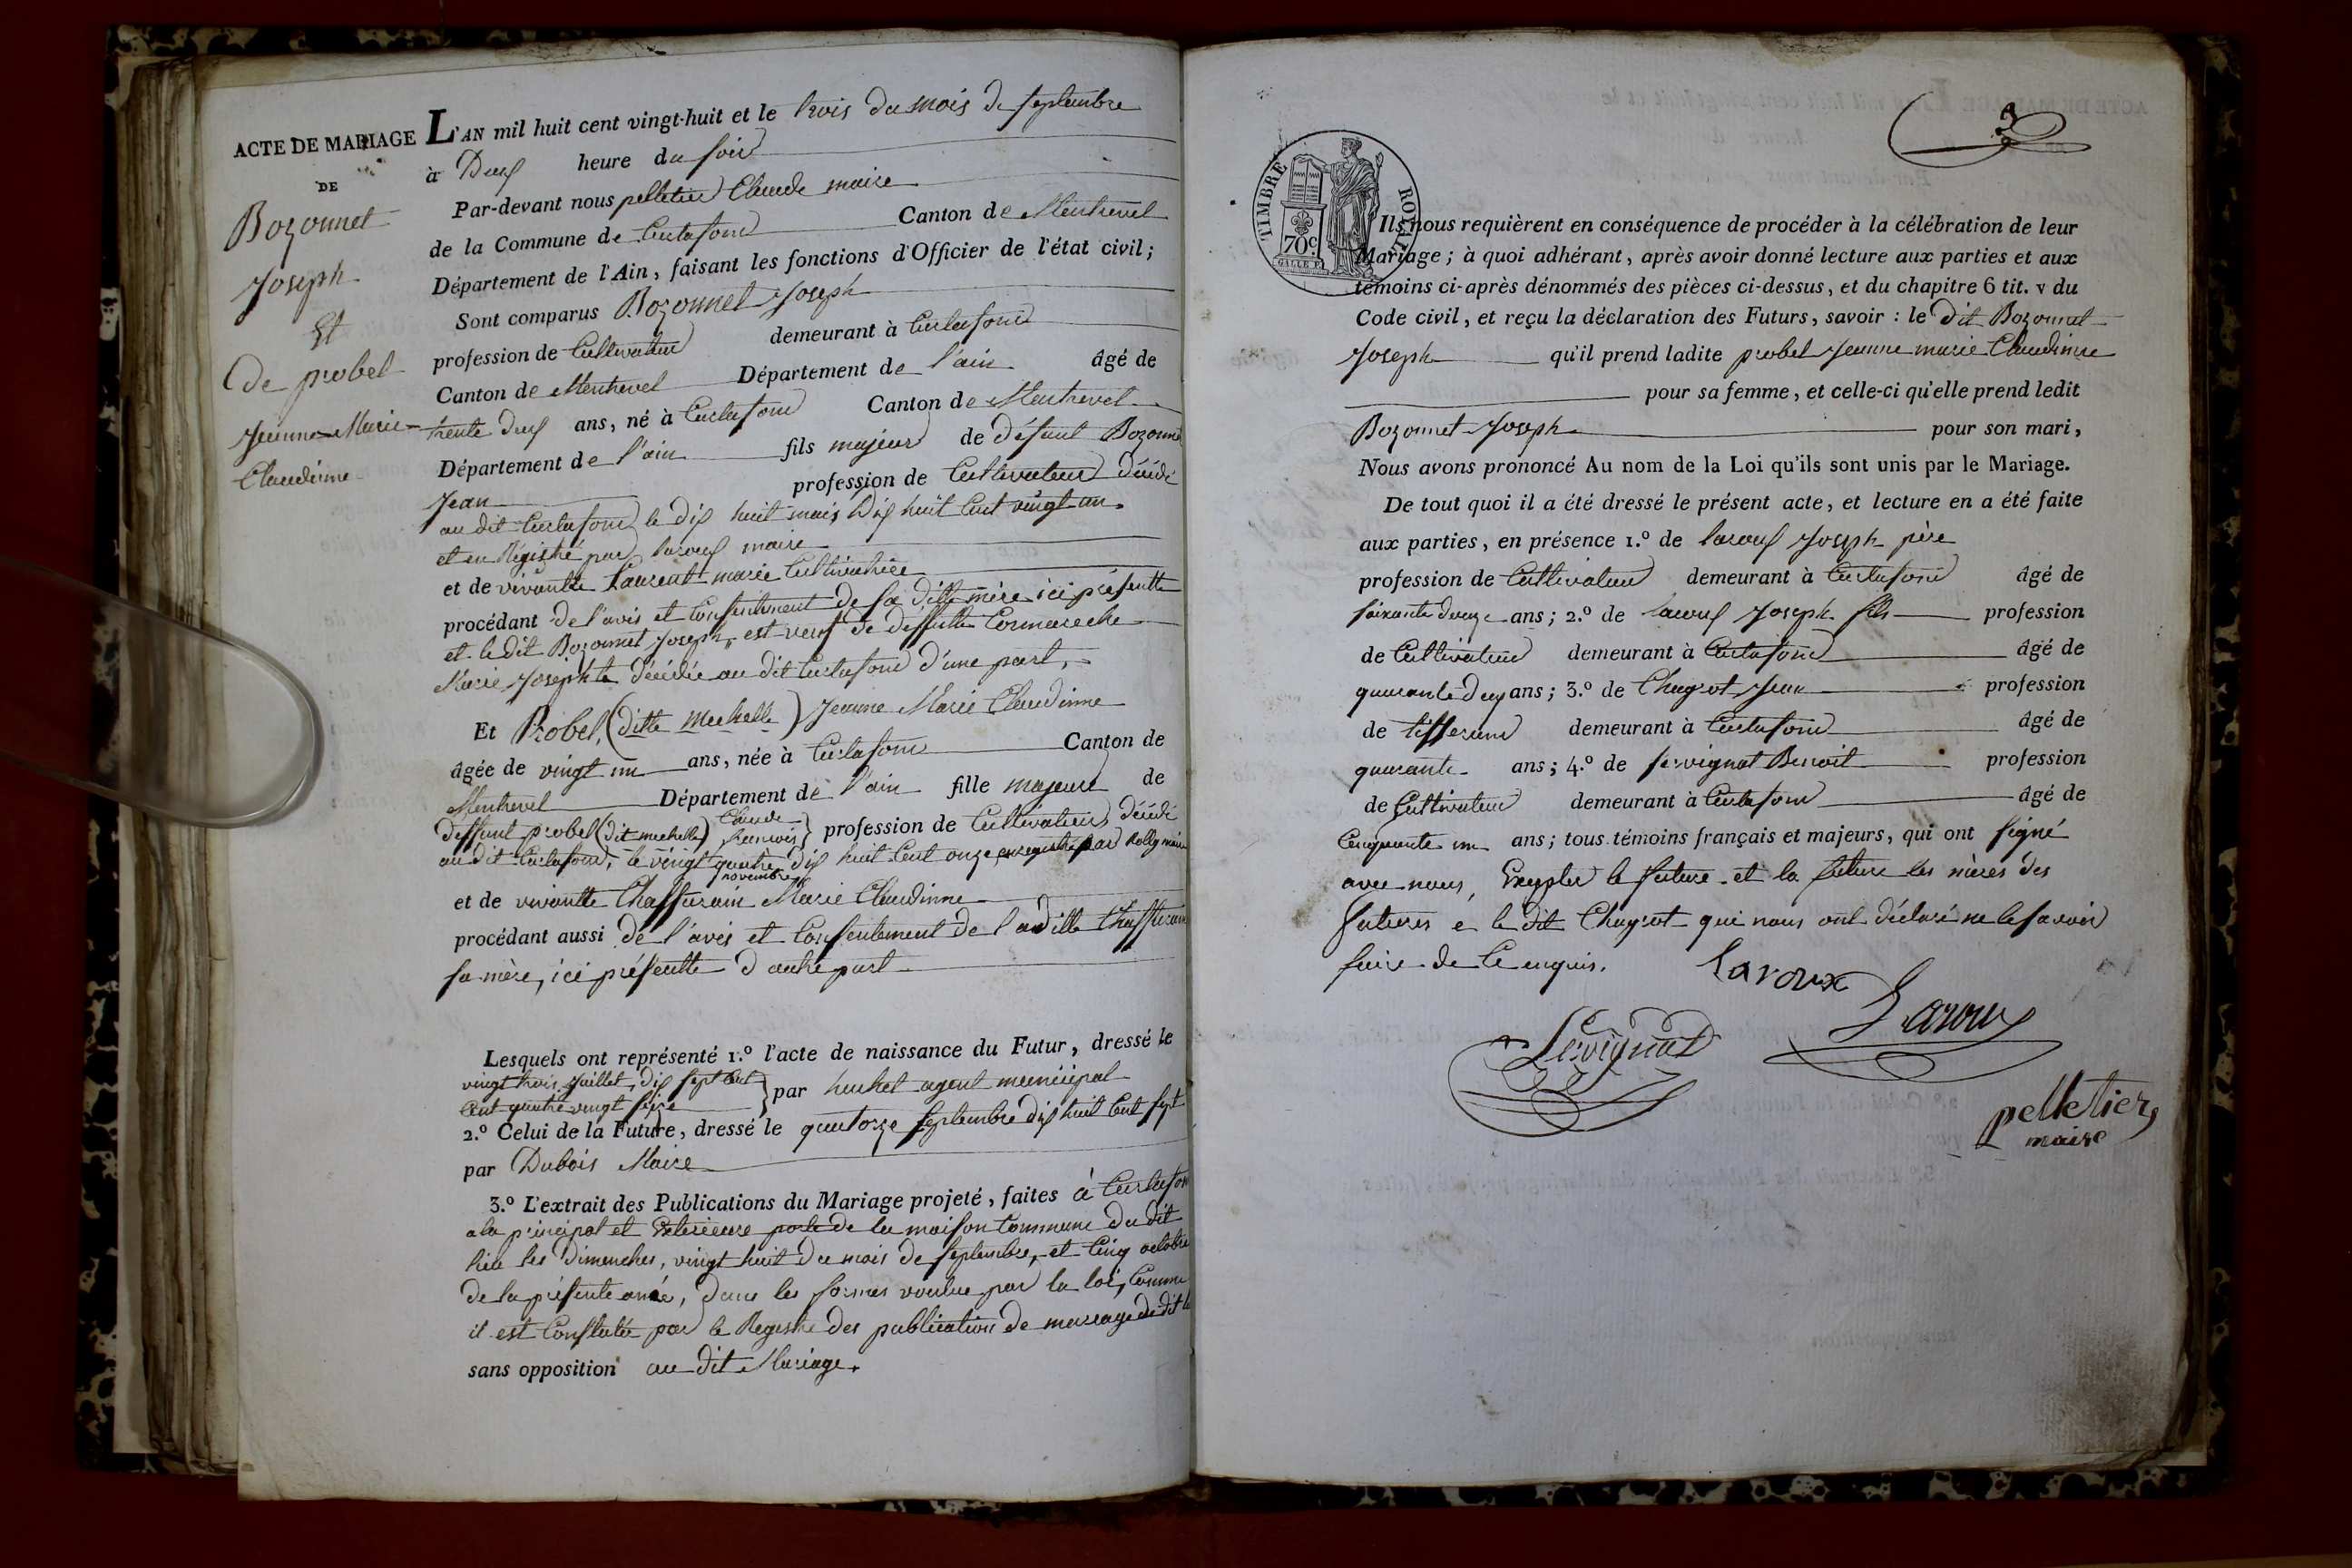 ACTE DE MARIAGE
DE
Bozonnet
Joseph
Et
De probel
Jeanne Marie
Claudinne
L'AN mil huit cent vingt-huit et le trois du mois de septembre
à Deux heure du soir
Par-devant nous pelletier Claude maire
de la Commune de Curtafond Canton de Montrevel
Département de l'Ain, faisant les fonctions d'Officier de l'état civil;
Sont comparus Bozonnet Joseph
profession de Cultivateur demeurant à Curtafond
Canton de Montrevel Département de l'ain âgé de
trente deux ans, né à Curtafond Canton de Montrevel
Département de l'ain fils majeur de défunt Bozonnet
Jean profession de Cultivateur décédé
au dit Curtafond le dix huit mars Dix huit Cent vingt un.
et en Régistré par laroux maire
et de vivantte Laurent marie Cultivatrice
procédant de l'avis et Consentement de sa ditte mère ici présentte
et le dit Bozonnet Joseph, est veuf de deffuntte Cormareche
Marie Josephte décédée au dit Curtafond d'une part,
Et Probel, (ditte Michelle) Jeanne Marie Claudinne
âgée de vingt un ans, née à Curtafond Canton de
Montrevel Département de l'ain fille majeure de
deffunt probel (dit michelle) Claude francois profession de Cultivateur, décédé
au dit Curtafond, le vingt quatre novembre dix huit Cent onze enregistré par Rolly maire
et de vivantte Chaffurain Marie Claudinne
procédant aussi de l'avis et Consentement de la ditte Chaffurain
sa mère, ici présentte d'autre part
Lesquels ont représenté 1.º l'acte de naissance du Futur, dressé le
vingt trois Juillet, dix sept Cent
Cent quatre vingt seize par huchet agent municipal
2.º Celui de la Future, dressé le quatorze septembre dix huit Cent sept
par Dubois Maire
3.º L'extrait des Publications du Mariage projeté, faites à Curtafond
a la principal et Exterieure porte de la maison Commune du dit
lieu les Dimanches, vingt huit du mois de septembre, et Cinq octobre
de la présente anée, dans les formes voulue par la loi, Comme
il est Constatée par le Registre des publication de mariage du dit
sans opposition au dit Mariage.
3
TIMBRE ROYAL
70c
Ils nous requièrent en conséquence de procéder à la célébration de leur
Mariage; à quoi adhérant, après avoir donné lecture aux parties et aux
témoins ci-après dénommés des pièces ci-dessus, et du chapitre 6 tit. v du
Code civil, et reçu la déclaration des Futurs, savoir : le dit Bozonnet
Joseph qu'il prend ladite probel Jeanne marie Claudinne
pour sa femme, et celle-ci qu'elle prend ledit
Bozonnet Joseph pour son mari,
Nous avons prononcé Au nom de la Loi qu'ils sont unis par le Mariage.
De tout quoi il a été dressé le présent acte, et lecture en a été faite
aux parties, en présence 1.º de laroux Joseph père
profession de Cultivateur demeurant à Curtafond âgé de
soixante douze ans; 2.º de laroux Joseph fils profession
de Cultivateur demeurant à Curtafond âgé de
quarante deux ans; 3.º de Chagrot Jean profession
de tisserand demeurant à Curtafond âgé de
quarante ans; 4.º de servignat Benoit profession
de Cultivateur demeurant à Curtafond âgé de
Cinquante un ans; tous témoins français et majeurs, qui ont signé
avec nous, Exepter le future et la future les mères des
futures é le dit Chagrot qui nous ont déclaré ne le savoir
faire de Ce enquis.
Laroux
Laroux
Servignat
pelletier
maire